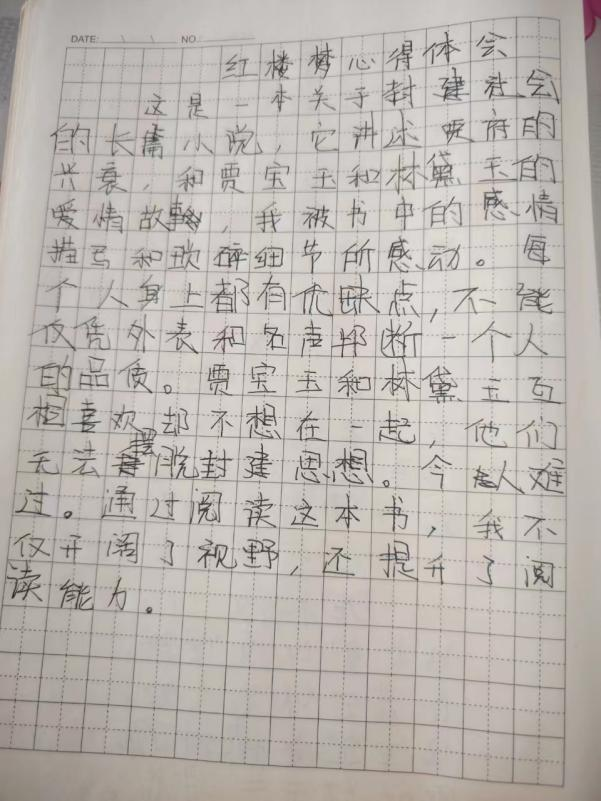 DATE: \ \ NO.
红楼梦心得体会
这是一本关于封建社会
的长篇小说,它讲述贾府的
兴衰,和贾宝玉和林黛玉的
爱情故事,我被书中的感情
描写和琐碎细节所感动。每
个人身上都有优缺点,不能
仅凭外表和名声判断一个人
的品质。贾宝玉和林黛玉互
相喜欢却不想在一起,他们
无法摆脱封建思想。令人难
过。通过阅读这本书,我不
仅开阔了视野,还提升了阅
读能力。